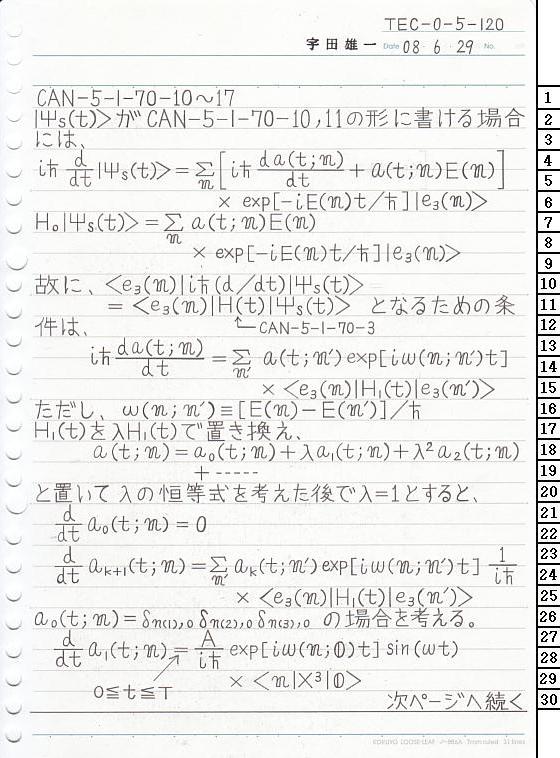 TEC-0-5-120
宇田雄一 Date 08・6・29 No.
CAN-5-1-70-10～17
|Ψs(t)>がCAN-5-1-70-10,11の形に書ける場合
には、
iħ d/dt |Ψs(t)> = Σ_n [iħ da(t;n)/dt + a(t;n)E(n)]
× exp[-iE(n)t/ħ]|e₃(n)>
H₀|Ψs(t)> = Σ_n a(t;n)E(n)
× exp[-iE(n)t/ħ]|e₃(n)>
故に、<e₃(n)|iħ(d/dt)|Ψs(t)>
= <e₃(n)|H(t)|Ψs(t)> となるための条
件は、
CAN-5-1-70-3
iħ da(t;n)/dt = Σ_n' a(t;n')exp[iω(n;n')t]
× <e₃(n)|H₁(t)|e₃(n')>
ただし、ω(n;n')≡[E(n)-E(n')]/ħ
H₁(t)をλH₁(t)で置き換え、
a(t;n)=a₀(t;n)+λa₁(t;n)+λ²a₂(t;n)
+ -----
と置いてλの恒等式を考えた後でλ=1とすると、
d/dt a₀(t;n) = 0
d/dt a_{k+1}(t;n) = Σ_n' a_k(t;n')exp[iω(n;n')t] 1/iħ
× <e₃(n)|H₁(t)|e₃(n')>
a₀(t;n)=δ_{n(1),0} δ_{n(2),0} δ_{n(3),0} の場合を考える。
d/dt a₁(t;n) = A/iħ exp[iω(n;𝟘)t] sin(ωt)
× <n|X³|𝟘>
0≦t≦T
次ページへ続く
KOKUYO LOOSE-LEAF ノ-886A 7mm ruled 31 lines
1
2
3
4
5
6
7
8
9
10
11
12
13
14
15
16
17
18
19
20
21
22
23
24
25
26
27
28
29
30